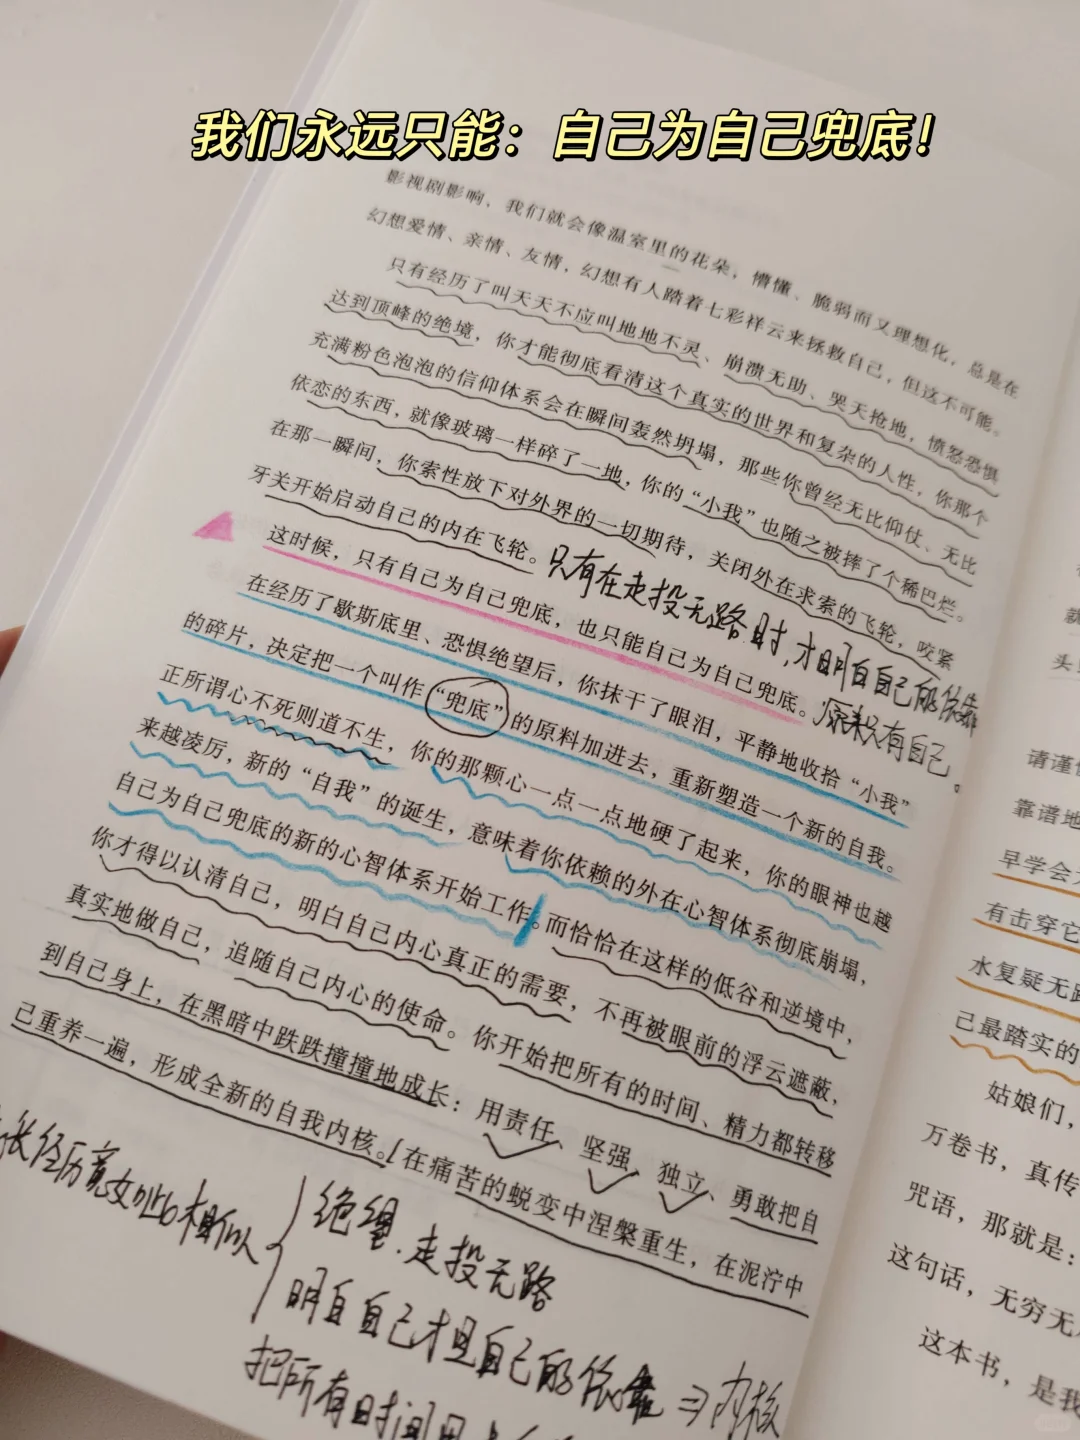 我们永远只能：自己为自己兜底！
影视剧影响，我们就会像温室里的花朵，懵懂、脆弱而又理想化，总是在
幻想爱情、亲情、友情，幻想有人踏着七彩祥云来拯救自己，但这不可能。
只有经历了叫天天不应叫地地不灵、崩溃无助、哭天抢地，愤怒恐惧
达到顶峰的绝境，你才能彻底看清这个真实的世界和复杂的人性，你那个
充满粉色泡泡的信仰体系会在瞬间轰然坍塌，那些你曾经无比仰仗、无比
依恋的东西，就像玻璃一样碎了一地，你的“小我”也随之被摔了个稀巴烂。
在那一瞬间，你索性放下对外界的一切期待，关闭外在求索的飞轮，咬紧
牙关开始启动自己的内在飞轮。
只有在走投无路时，才明白自己的依靠
原来只有自己。
这时候，只有自己为自己兜底，也只能自己为自己兜底。
在经历了歇斯底里、恐惧绝望后，你抹干了眼泪，平静地收拾“小我”
的碎片，决定把一个叫作“兜底”的原料加进去，重新塑造一个新的自我。
正所谓心不死则道不生，你的那颗心一点一点地硬了起来，你的眼神也越
来越凌厉，新的“自我”的诞生，意味着你依赖的外在心智体系彻底崩塌，
自己为自己兜底的新的心智体系开始工作。而恰恰在这样的低谷和逆境中，
你才得以认清自己，明白自己内心真正的需要，不再被眼前的浮云遮蔽，
真实地做自己，追随自己内心的使命。你开始把所有的时间、精力都转移
到自己身上，在黑暗中跌跌撞撞地成长：用责任、坚强、独立、勇敢把自
己重养一遍，形成全新的自我内核。在痛苦的蜕变中涅槃重生，在泥泞中
经历竟如此相似
绝望、走投无路
明白自己才是自己的依靠⇒内核
把所有时间用
请谨
靠谱地
早学会
有击穿它
水复疑无路
己最踏实的
姑娘们，
万卷书，真传
咒语，那就是：
这句话，无穷无
这本书，是我